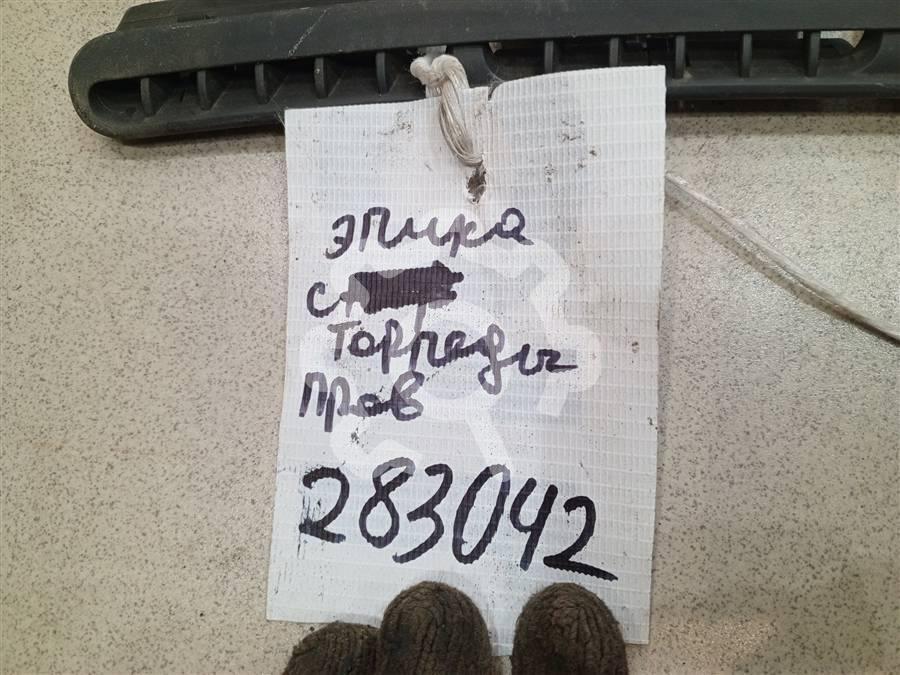 Эпика
с
торпеды
прав
283042